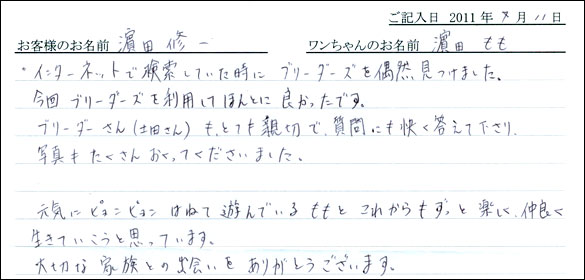 ご記入日 2011年 8月 11日
お客様のお名前 濵田 修一 ワンちゃんのお名前 濵田 もも
・インターネットで検索していた時に ブリーダーズを偶然見つけました。
今回 ブリーダーズを利用してほんとに 良かったです。
ブリーダーさん(土田さん)も、とても親切で、質問にも快く答えて下さり、
写真もたくさんおくってくださいました。
元気にピョンピョン はねて 遊んでいる ももと これからもずっと楽しく、仲良く
生きていこうと思っています。
大切な家族との出会いをありがとうございます。